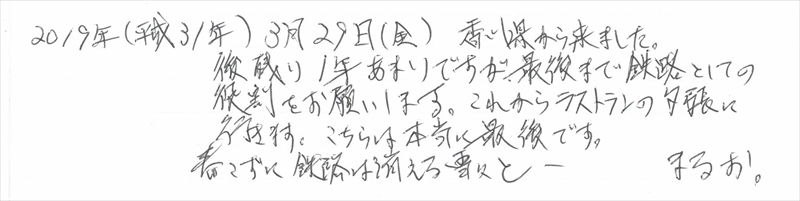 2019年(平成31年) 3月29日(金) 香川県から来ました。
後残り1年あまりですが最後まで鉄路としての
役割をお願いします。これからラストランの夕張に
行きます。こちらは本当に最後です。
春こずに鉄路は消える雪と一
まるお。